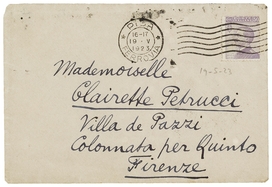 PISA
16-17
19·V
1923
FERROVIA
19-5-23
Mademoiselle
Clairette Petrucci
Villa de Pazzi
Colonnata per Quinto
Firenze